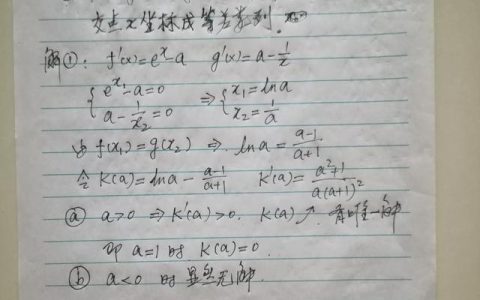 交点之坐标成等差数列.
解①: f'(x)=e^x-a g'(x)=a-1/x
{e^{x_1}-a=0 a-1/x_2=0 ⇒ {x_1=lna x_2=1/a
由 f(x_1)=g(x_2) ⇒ lna=(a-1)/(a+1)
令 K(a)=lna-(a-1)/(a+1) K'(a)=(a^2+1)/(a(a+1)^2)
ⓐ a>0 ⇒K'(a)>0. K(a)↗. 有唯一解
即 a=1时 K(a)=0.
ⓑ a<0 时 显然无解.